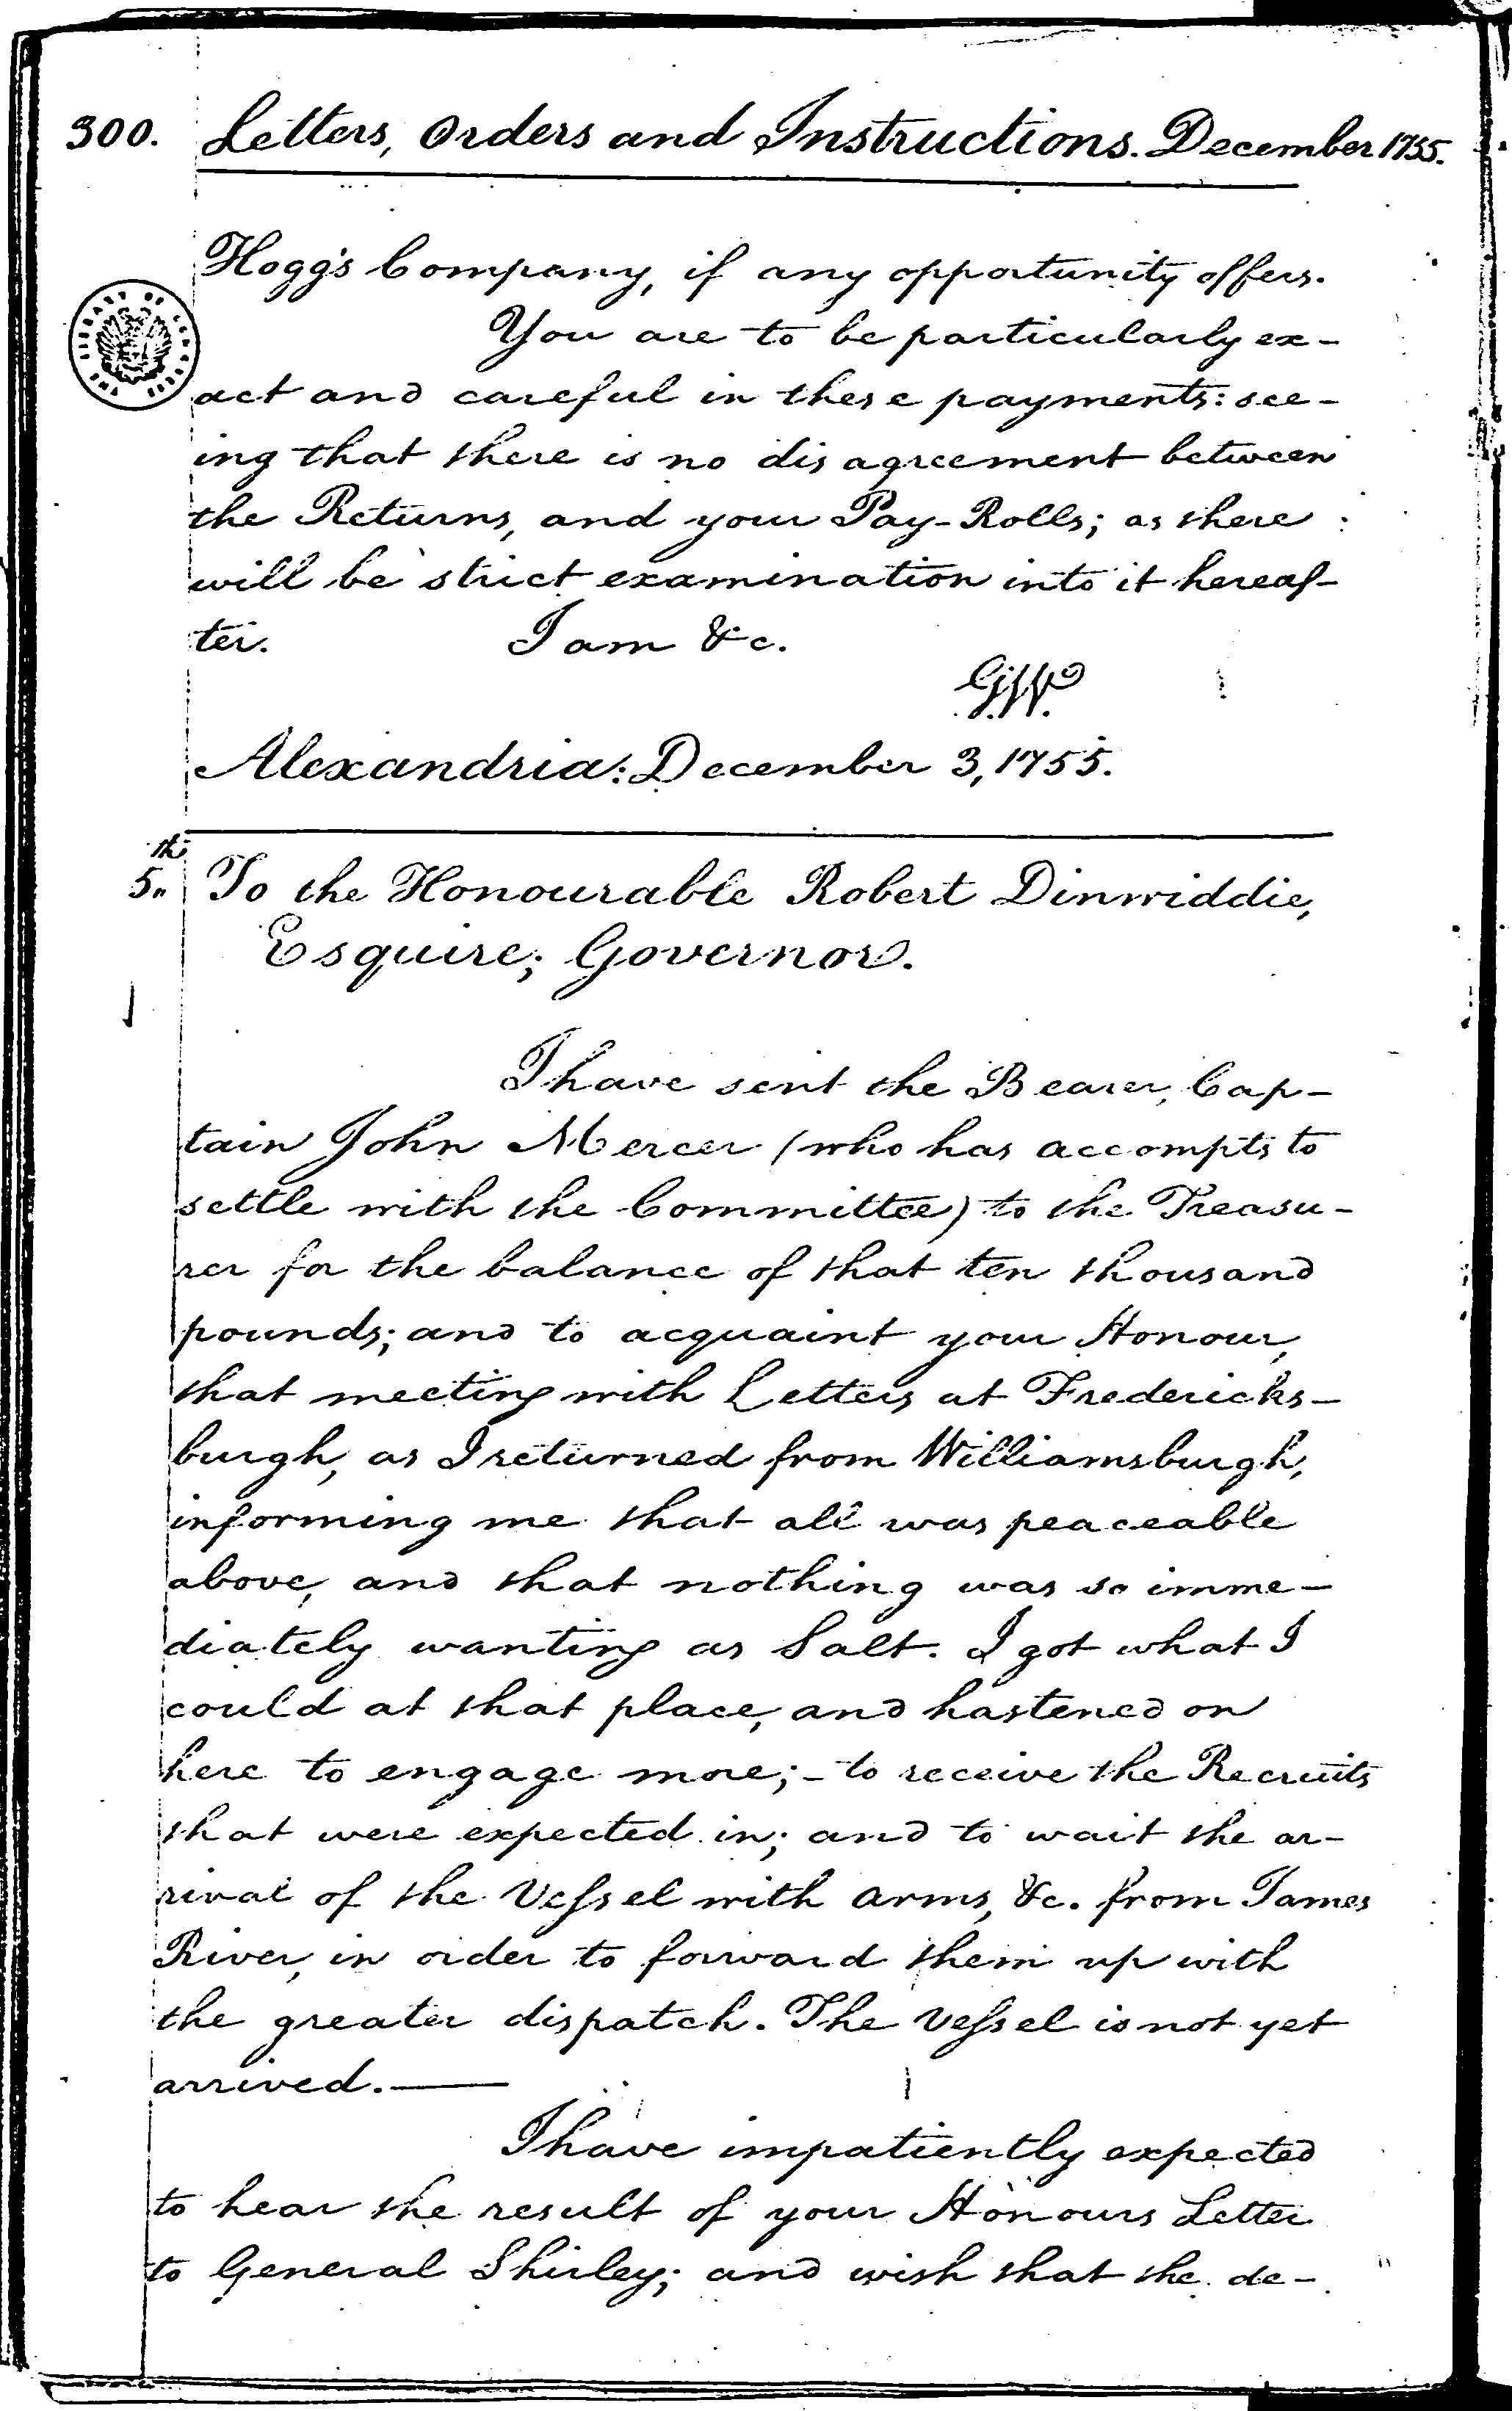 300. Letters, Orders and Instructions. December 1755.
Hogg's Company, if any opportunity offers.
You are to be particularly ex-
act and careful in these payments: see-
ing that there is no disagreement between
the Returns, and your Pay-Rolls; as there
will be strict examination into it hereaf-
ter. I am &c.
GW.
Alexandria: December 3, 1755.
5th To the Honourable Robert Dinwiddie,
Esquire; Governor.
I have sent the Bearer, Cap-
tain John Mercer (who has accompts to
settle with the Committee) to the Treasu-
rer for the balance of that ten thousand
pounds; and to acquaint your Honour,
that meeting with Letters at Fredericks-
burgh, as I returned from Williamsburgh,
informing me that all was peaceable
above, and that nothing was so imme-
diately wanting as Salt. I got what I
could at that place, and hastened on
here to engage more; - to receive the Recruits
that were expected in; and to wait the ar-
rival of the Vessel with arms, &c. from James
River, in order to forward them up with
the greater dispatch. The Vessel is not yet
arrived.—
I have impatiently expected
to hear the result of your Honours Letter
to General Shirley; and wish that the de-
THE LIBRARY OF CONGRESS